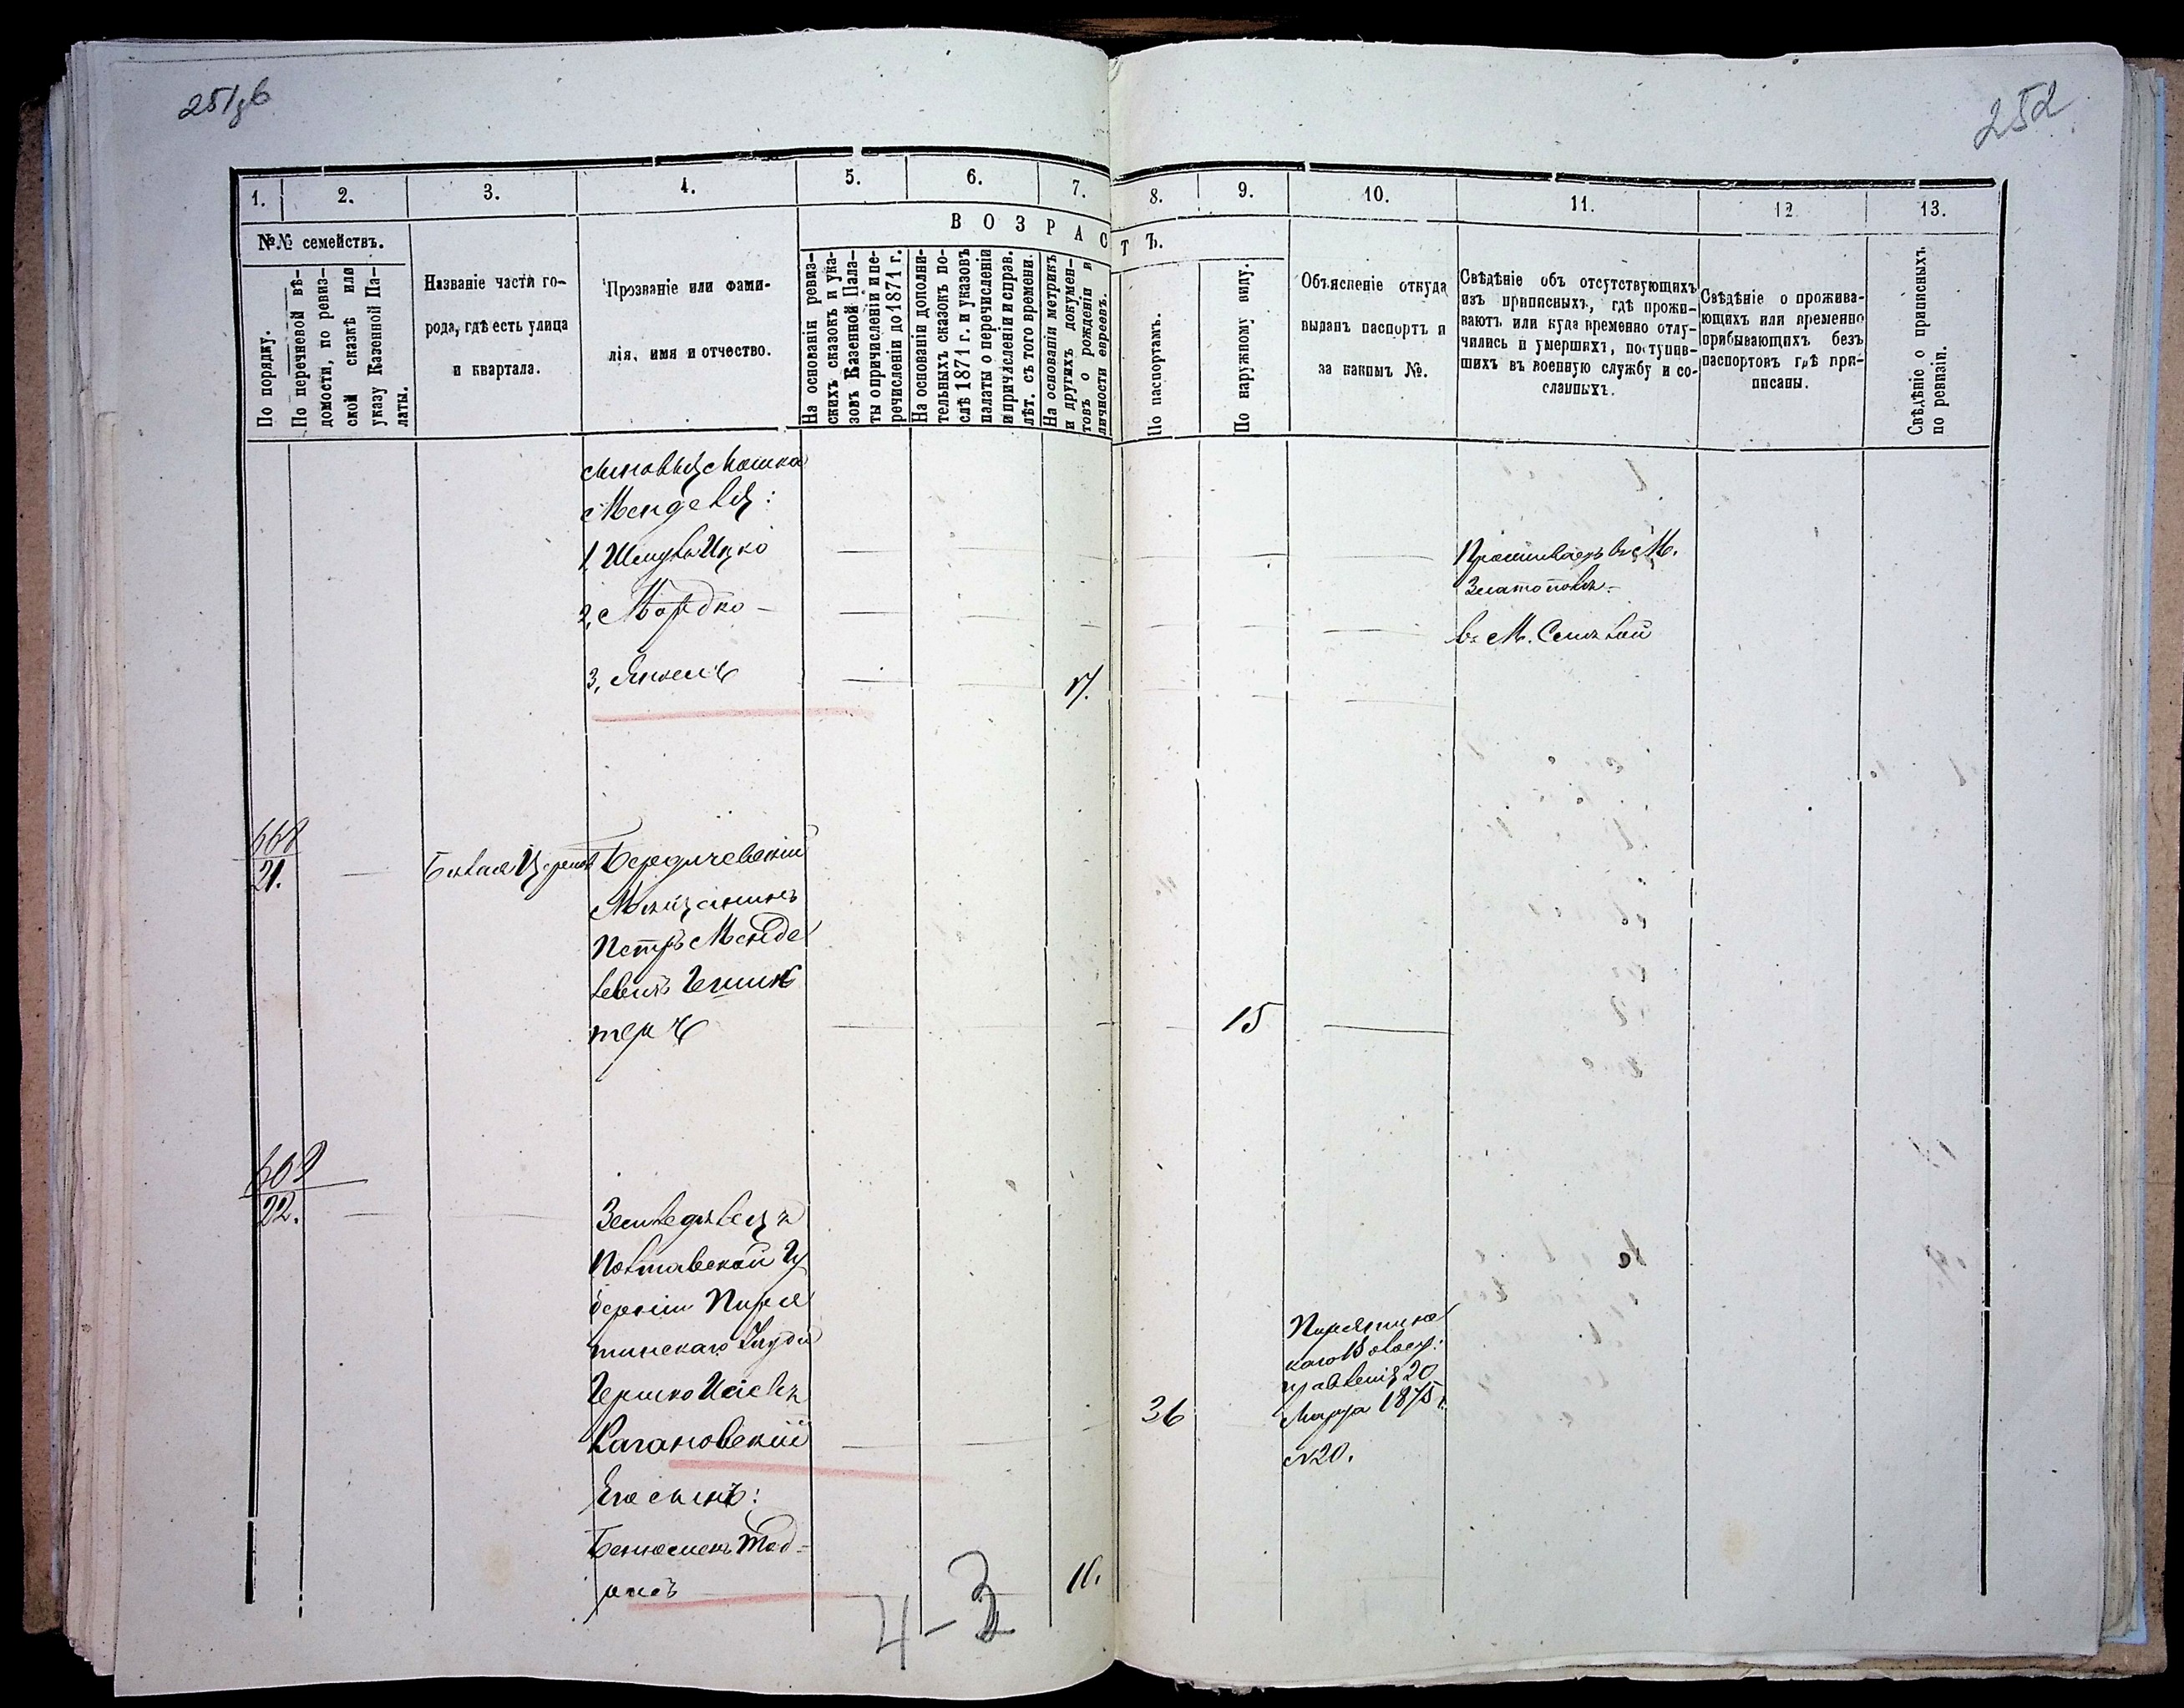 251об
252
1.
2.
3.
4.
5.
6.
7.
8.
9.
10.
11.
12
13.
№№ семействъ.
ВОЗРАСТЪ.
По порядку.
По перечневой вѣ-
домости, по ревиз-
ской сказкѣ или
указу Казенной Па-
латы.
Названіе части го-
рода, гдѣ есть улица
и квартала.
Прозваніе или фами-
лія, имя и отчество.
На основаніи ревиз-
скихъ сказокъ и ука-
зовъ Казенной Пала-
ты о причисленіи и пе-
речисленіи до 1871 г.
На основаніи дополни-
тельныхъ сказокъ по-
слѣ 1871 г. и указовъ
палаты о перечисленіи
и причисленіи и справ.
лѣт. съ того времени.
На основаніи метрикъ
и другихъ докумен-
товъ о рожденіи и
личности евреевъ.
По паспортамъ.
По наружному виду.
Объясненіе откуда
выданъ паспортъ и
за какимъ №.
Свѣдѣніе объ отсутствующихъ
изъ приписныхъ, гдѣ прожи-
ваютъ или куда временно отлу-
чились и умершихъ, поступив-
шихъ въ военную службу и со-
сланныхъ.
Свѣдѣніе о прожива-
ющихъ или временно
прибывающихъ безъ
паспортовъ гдѣ при-
писаны.
Свѣдѣніе о приписныхъ
по ревизіи.
сыновья Мошка
Менделя:
1, Шмуль Ицко
Проживаетъ въ М.
Златополѣ.
2, Мордко
въ М. Смѣлой
3, Янкель
17.
21.
Бѣлая Церковь
Бердичевскій
Мѣщанинъ
Петръ Менде
левичъ
теръ
15
22.
Земледѣлецъ
Полтавской Гу
берніи Пиря
тинскаго Уѣзда
Гершко
Кагановскій
36
Пирятинс
каго Волост:
правленія 20
Марта 1875 г.
№20.
Его сынъ:
10.
4-3